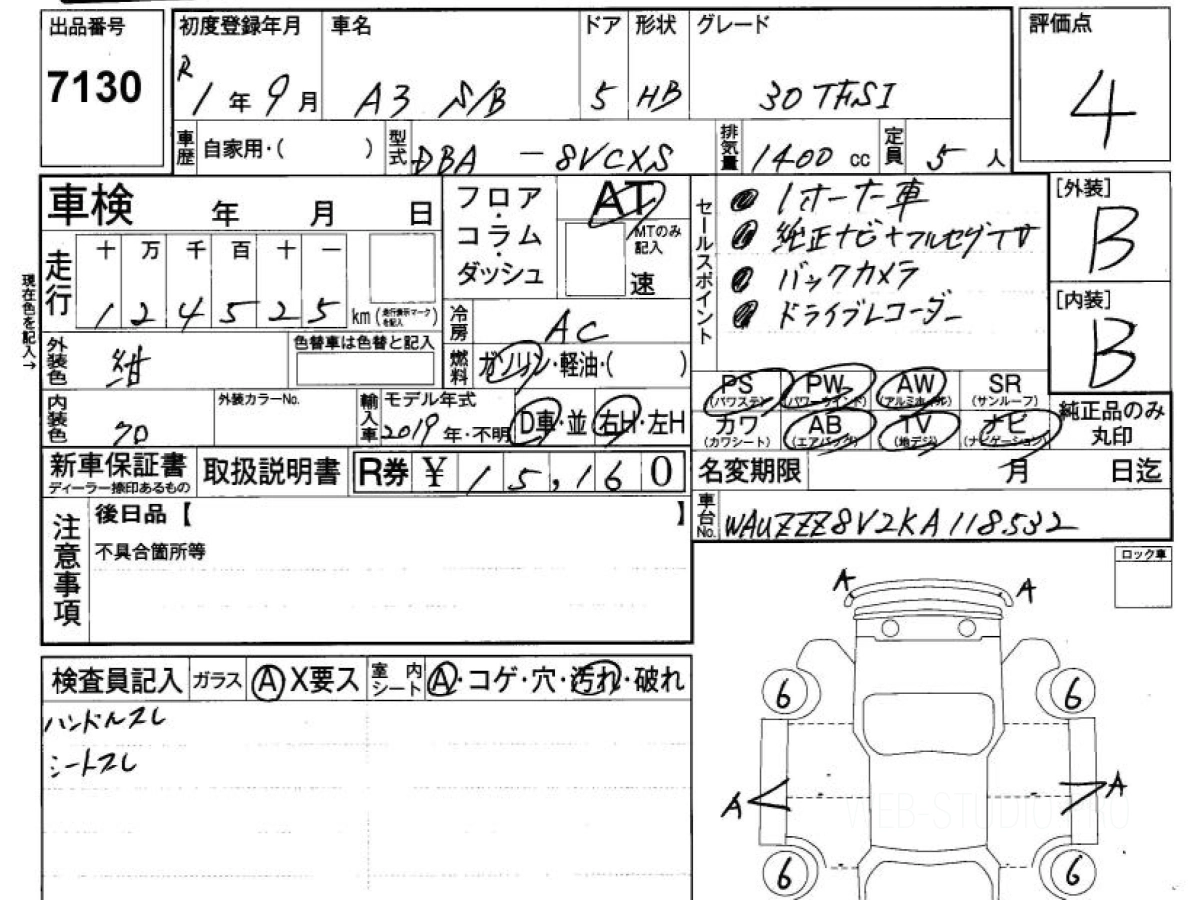 出品番号 初度登録年月 車名 ドア 形状 グレード 評価点
7130 R1年9月 A3 S/B 5 HB 30 TFSI 4
車歴 自家用・( ) 型式 DBA-8VCXS 排気量 1400 cc 定員 5人
車検 年 月 日
フロア・コラム・ダッシュ AT MTのみ記入 速
セールスポイント
1オーナー車
純正ナビ+フルセグTV
バックカメラ
ドライブレコーダー
[外装]
B
[内装]
B
現在色を記入→
走行 十 万 千 百 十 一
124525 km (走行表示マークを記入)
冷房 AC
外装色 紺 色替車は色替と記入
燃料 ガソリン・軽油・( )
PS (パワステ) PW (パワーウインド) AW (アルミホイル) SR (サンルーフ)
カワ (カワシート) AB (エアバッグ) TV (地デジ) ナビ (ナビゲーション)
純正品のみ丸印
内装色 クロ 外装カラーNo. 輸入車 モデル年式 2019年・不明 D車・並 右H・左H
新車保証書 ディーラー捺印あるもの 取扱説明書 R券 ¥15,160
名変期限 月 日迄
車台No. WAUZZZ8V2KA118532
注意事項
後日品【 】
不具合箇所等
ロック車
A A
検査員記入 ガラス A X要ス 室内シート A・コゲ・穴・汚れ・破れ
ハンドルスレ
シートスレ
6 6
A A
6 6
WEB-STUDIO.PRO